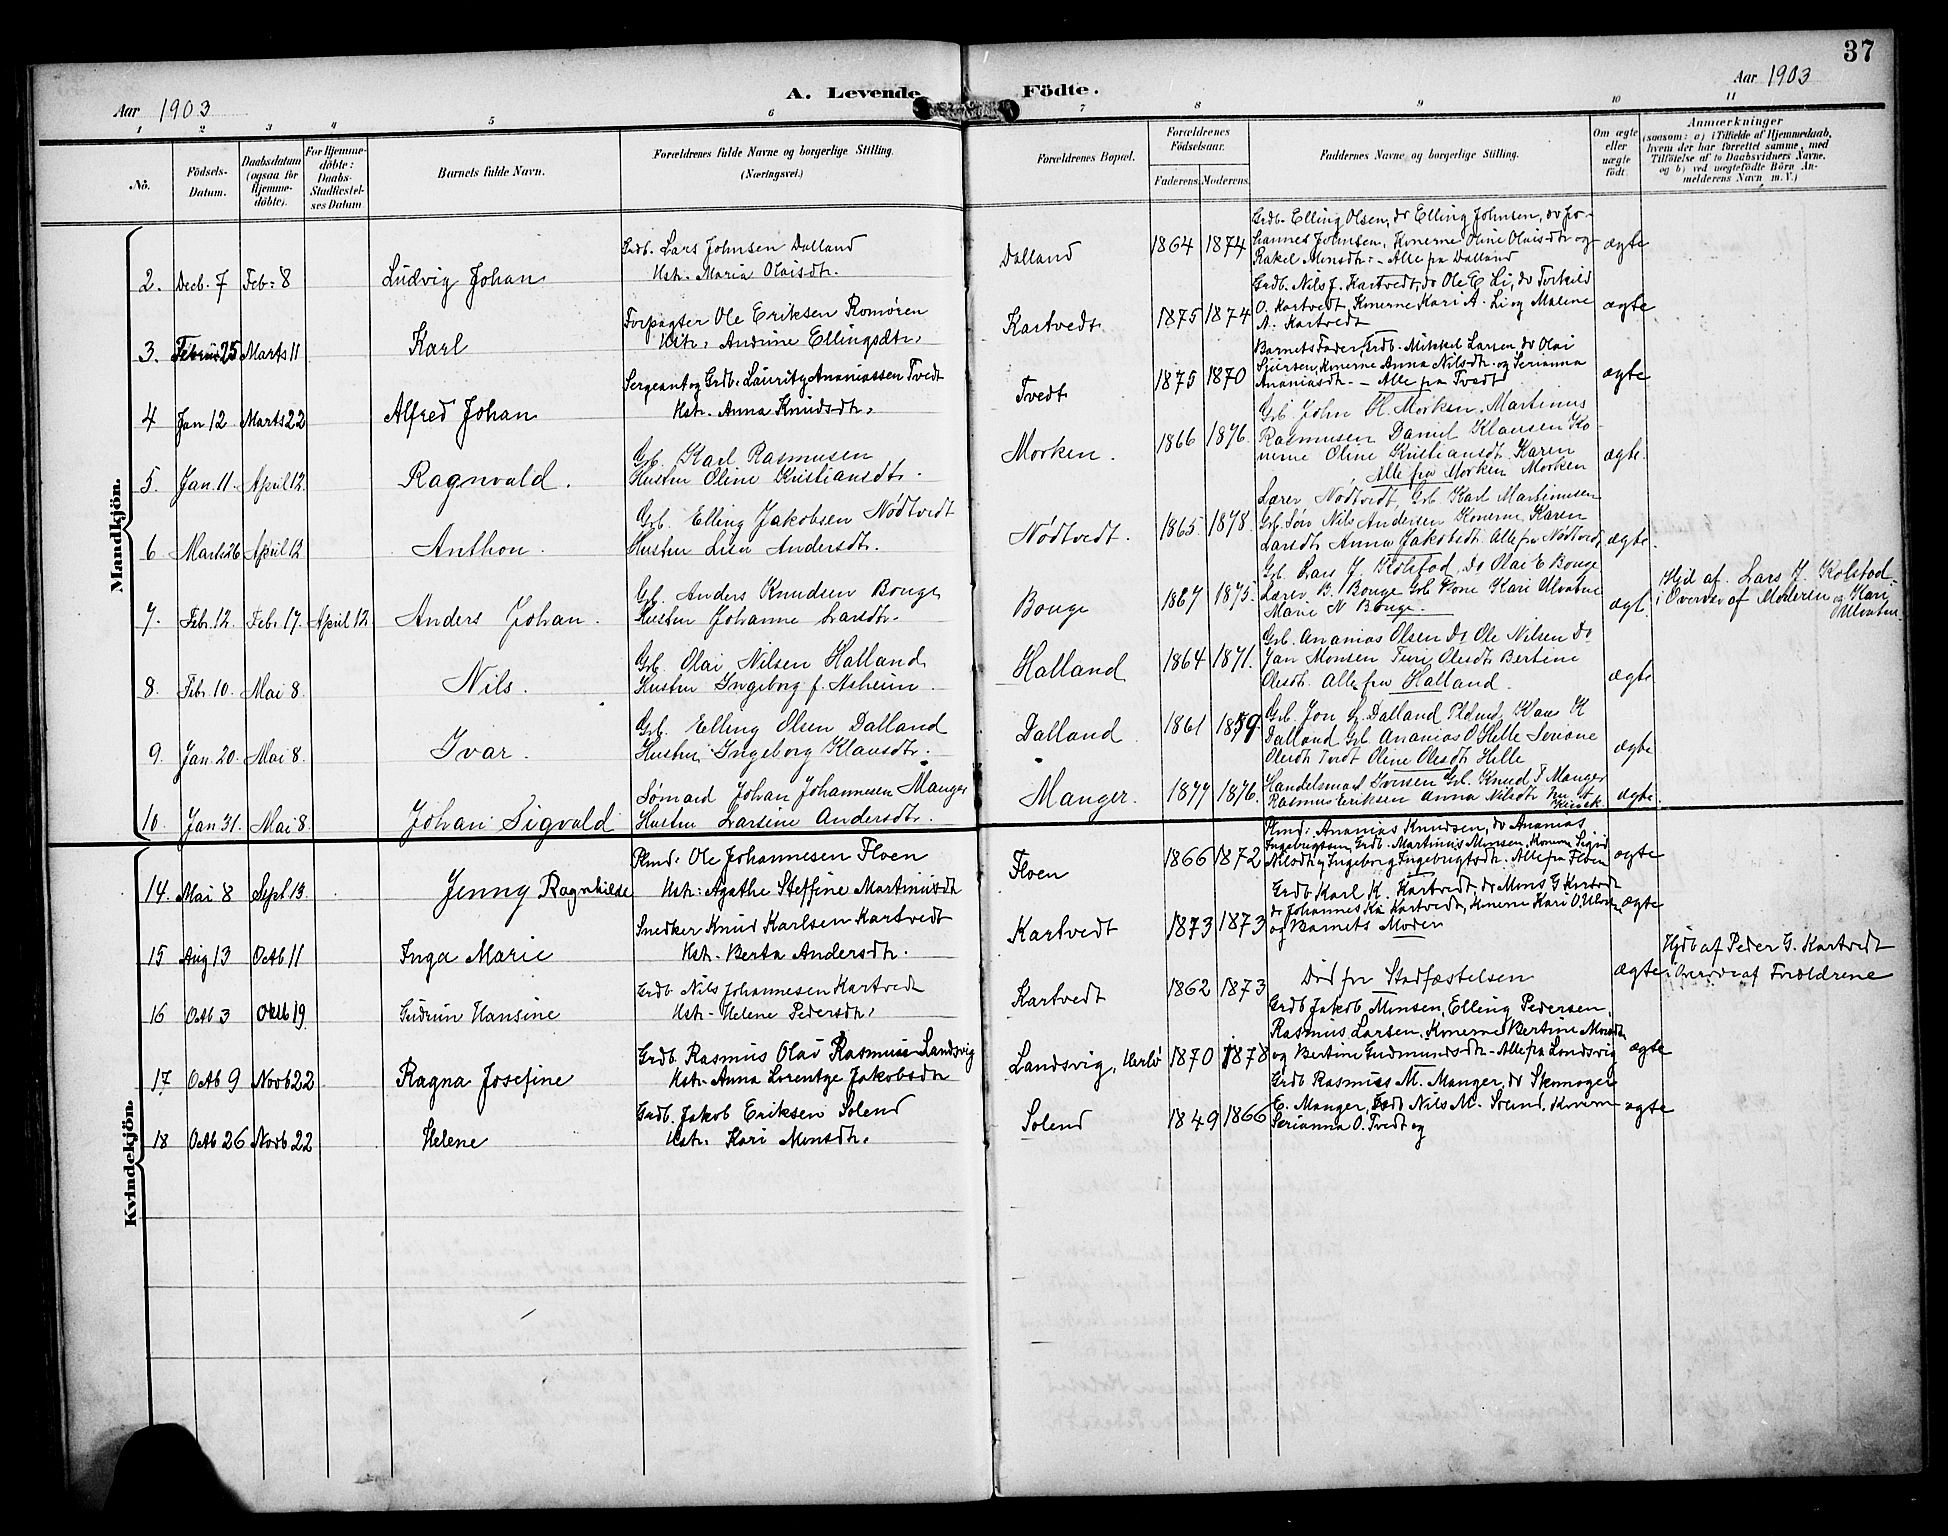 37
Aar 1903
A. Levende Födte.
Aar 1903
1 2 3 4 5 6 7 8 9 10 11
No.
Födsels-Datum.
Daabsdatum (ogsaa for Hjemme-döbte).
For Hjemme-döbte: Daabs-Stadfæstel-ses Datum
Barnets fulde Navn.
Forældrenes fulde Navne og borgerlige Stilling.
(Næringsvei.)
Forældrenes Bopæl.
Forældrenes Födselsaar.
Faderens. Moderens.
Faddernes Navne og borgerlige Stilling.
Om ægte eller uægte födt.
Anmærkninger
(saasom: a) i Tilfælde af Hjemmedaab,
hvem der har forrettet samme, med
Tilföielse af to Daabsvidners Navne,
og b) ved uægtefödte Börn An-
melderens Navn m. V.)
Mandkjön.
2. Decb. 7 Feb: 8 Ludvig Johan
Grdb. Lars Johnsen Dalland
Hstr. Maria Olaisdtr.
Dalland 1864 1874
Grdb. Elling Olsen, do Elling Johnsen, do Jo-
hannes Johnsen, Konerne Oline Olaisdtr og
Rakel Monsdtr - Alle fra Dalland
ægte
3. Februar 25 Marts 11 Karl
Forpagter Ole Eriksen Romören
Hstr: Andrine Ellingsdtr.
Kartvedt 1875 1874
Grdb. Nils J. Kartvedt, do Ole E Li, do Torkild
O. Kartvedt, Konerne Kari A. Li og Malene
A. Kartvedt
ægte
4 Jan 12 Marts 22 Alfred Johan
Sergeant og Grdb. Lauritz Ananiassen Tvedt
Hstr. Anna Knudsdtr.
Tvedt 1875 1870
Barnets Fader, Grdb. Mikkel Larsen, do Olai
Sjursen, Konerne Anna Nilsdtr. og Serianna
Ananiasdtr. - Alle fra Tvedt
ægte
5. Jan. 11. April 12. Ragnvald.
Grb. Karl Rasmusen
Hustru Oline Kristiansdtr.
Morken. 1866 1876.
Grb. John H. Morken, Martinus
Rasmusen Daniel Klausen Ko-
nerne Oline Kristiansdt. Karen
Alle fra Morken Morken
ægte.
6 Marts 26 April 12 Anthon.
Grb. Elling Jakobsen Nödtvedt
Hustru Lisa Andersdtr.
Nödtvedt. 1865 1878.
Lærer Nödtvedt, Grb. Karl Martinusen
Grb. Sön Nils Andersen Konerne Karen
Larsdtr Anna Jakobsdt. Alle fra Nödtvedt
ægte.
7. Feb. 12. Feb. 17. April 12 Anders Johan.
Grb. Anders Knudsen Bouge
Hustru Johanne Larsdtr.
Bouge 1867 1875.
Grb. Lars J. Kolstad, Do Olai E Bouge
Lærer B. Bouge Grb Kone Kari Ulvatne
Marie N Bouge.
ægt.
Hjd af. Lars J. Kolstad
i Overvær af Moderen og Kari
Ulvatne.
8. Feb. 10. Mai 8. Nils.
Grb. Olai Nilsen Halland
Hustru Ingeborg f. Asheim.
Halland 1864 1871.
Grb. Ananias Olsen Do Ole Nilsen Do
Jan Monsen Turi Olesdtr Bertine
Olesdt. Alle fra Halland.
ægte
9. Jan. 20. Mai 8. Ivar.
Grb. Elling Olsen Dalland
Hustru Ingeborg Klausdtr.
Dalland. 1861 1859
Grb. Jon J. Dalland Pldmd. Klaus K
Dalland Grb Ananias O Helle
Olesdt Tvedt Oline Olesdt. Helle
ægte
10. Jan 31. Mai 8. Johan Sigvald
Sömand Johan Johannesen Manger
Hustru Larsine Andersdtr.
Manger. 1877 1876.
Handelsmand Iversen Grb. Knud T Manger
Rasmus Eriksen Anna Nilsdtr
ægte.
Kvindekjön.
14. Mai 8 Sept 13. Jenny Ragnhilde
Plmd: Ole Johannesen Floen
Hstr: Agathe Steffine Martinusdtr
Floen 1866 1872
Plmd: Ananias Knudsen, do Ananias
Ingebrigtsen, Grdb. Martinus Monsen, Konerne Sigrid
Nilsdtr og Ingeborg Ingebrigtsdtr. Alle fra Floen
ægte
15 Aug 13 Octb 11 Inga Marie
Snedker Knud Karlsen Kartvedt
Hstr. Berta Andersdtr.
Kartvedt 1873 1873
Grdb. Karl K. Kartvedt, do Mons G Kartvedt
do Johannes Kartvedt, Konerne Kari O. Ulvatne
og Barnets Moder
ægte
16 Octb 3 Octb 19 Gudrun Hansine
Grdb Nils Johannesen Kartvedt
Hstr- Helene Pedersdtr.
Kartvedt 1862 1873
Död for Stadfæstelsen
ægte
Hjdb af Peder G. Kartvedt
i Overvær af Forældrene
17 Octb 9 Novb 22 Ragna Josefine
Grdb. Rasmus Olai Rasmussen Landsvig
Hstr. Anna Lorentze Jakobsdtr
Landsvig, Herlö 1870 1878
Grdb Jakob Monsen, Elling Pedersen,
Rasmus Larsen, Konerne Bertine Monsdtr
og Bertine Gudmundsdtr - Alle fra Landsvig
ægte
18 Octb 26 Novb 22 Helene
Grdb. Jakob Eriksen Solend
Hstr. Kari Monsdtr.
Solend 1849 1866
Grdb Rasmus M. Manger, do Skonoger
E. Manger, Nils M. Solend, Konerne
Serianna O. Tvedt og
ægte